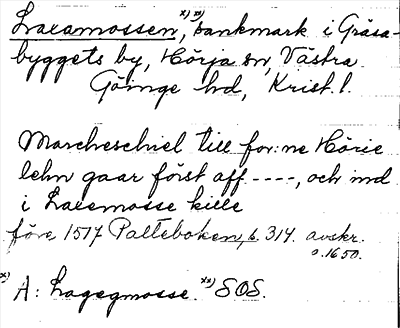 Laxamossen, x) xx) sankmark i Gräsa-
byggets by, Hörja sn, Västra
Göinge hd, Krist. l.
Marcheschiel till for:ne Hörie
lehn gaar först aff ----, och ind
i Laxemosse kille
före 1517 Palteboken, s. 314. avskr.
o. 1650.
x) A: Lagegmosse. xx) SOS.